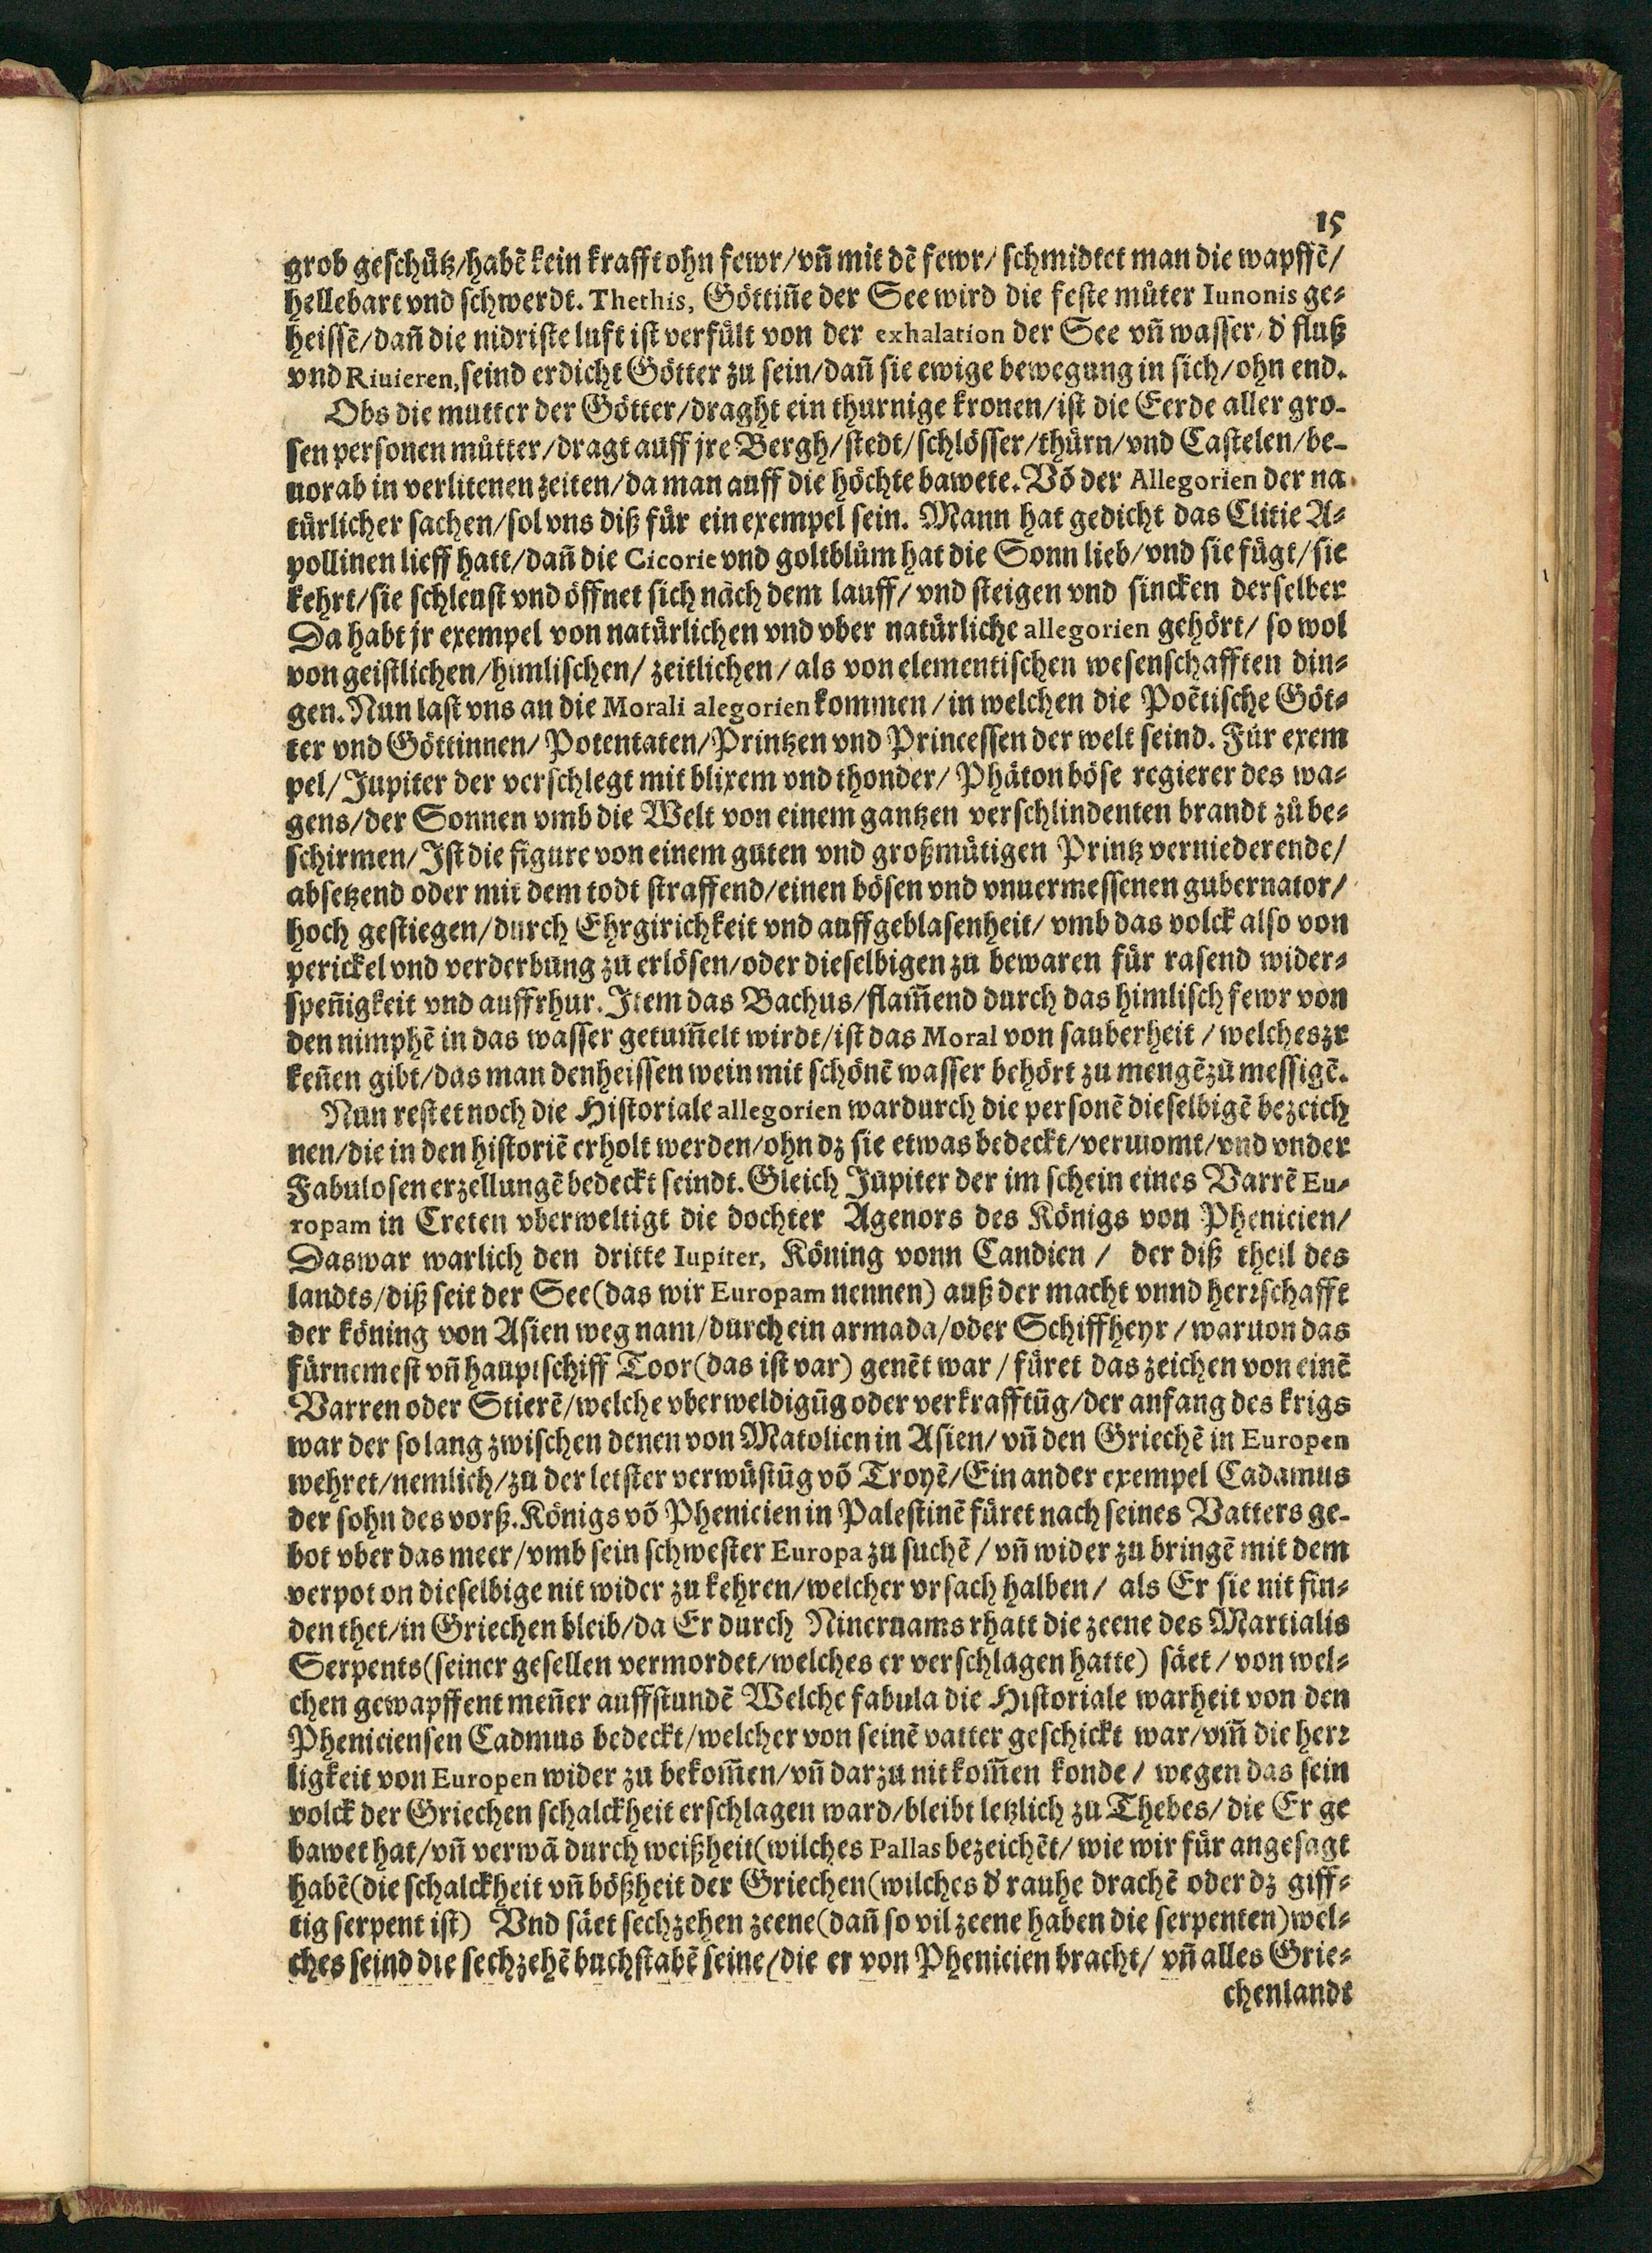 15
grob geschütz/habẽ kein krafft ohn fewr/vñ mit dẽ fewr/ schmidtet man die wapffẽ/
hellebart vnd schwerdt. Thethis, Göttiñe der See wird die feste můter Iunonis ge-
heissẽ/dañ die nidriste luft ist verfült von der exhalation der See vñ wasser/ d' fluß
vnd Riuieren, seind erdicht Götter zu sein/dañ sie ewige bewegung in sich/ohn end.
Obs die mutter der Götter/draght ein thurnige kronen/ist die Eerde aller gro-
sen personen můtter/dragt auff jre Bergh/stedt/schlösser/thürn/vnd Castelen/be-
uorab in verlitenen zeiten/da man auff die höchte bawete. Võ der Allegorien der na
türlicher sachen/sol vns diß für ein exempel sein. Mann hat gedicht das Clitie A-
pollinen lieff hatt/dañ die Cicorie vnd goltblům hat die Sonn lieb/vnd sie fügt/sie
kehrt/sie schleust vnd öffnet sich nach dem lauff/vnd steigen vnd sincken derselber
Da habt jr exempel von natürlichen vnd vber natürliche allegorien gehört/ so wol
von geistlichen/himlischen/ zeitlichen/als von elementischen wesenschafften din-
gen. Nun last vns an die Morali alegorien kommen/in welchen die Poëtische Göt-
ter vnd Göttinnen/Potentaten/Printzen vnd Princessen der welt seind. Für exem
pel/Jupiter der verschlegt mit blixem vnd thonder/Phäton böse regierer des wa-
gens/der Sonnen vmb die Welt von einem gantzen verschlindenten brandt zů be-
schirmen/Ist die figure von einem guten vnd großmütigen Printz verniederende/
absetzend oder mit dem todt straffend/einen bösen vnd vnuermessenen gubernator/
hoch gestiegen/durch Ehrgirichkeit vnd auffgeblasenheit/ vmb das volck also von
perickel vnd verderbung zu erlösen/oder dieselbigen zu bewaren für rasend wider-
speñigkeit vnd auffrhur. Item das Bachus/flam̃end durch das himlisch fewr von
den nimphẽ in das wasser getum̃elt wirdt/ist das Moral von sauberheit/welcheszr
keñen gibt/das man den heissen wein mit schönẽ wasser behört zu mengẽ zů messigẽ.
Nun restet noch die Historiale allegorien wardurch die personẽ dieselbigẽ bezeich
nen/die in den historiẽ erholt werden/ohn dz sie etwas bedeckt/vermomt/vnd vnder
Fabulosen erzellungẽ bedeckt seindt. Gleich Jupiter der im schein eines Varrẽ Eu-
ropam in Creten vberweltigt die dochter Agenors des Königs von Phenicien/
Das war warlich den dritte Iupiter, Köning vonn Candien/ der diß theil des
landts/diß seit der See (das wir Europam nennen) auß der macht vnnd herrschafft
der köning von Asien weg nam/durch ein armada/oder Schiffheyr/waruon das
fürnemest vñ hauptschiff Toor (das ist var) genẽt war/füret das zeichen von einẽ
Varren oder Stierẽ/welche vberweldigũg oder verkrafftũg/der anfang des krigs
war der so lang zwischen denen von Matolien in Asien/vñ den Griechẽ in Europen
wehret/nemlich/zu der letster verwüstũg võ Troyẽ/Ein ander exempel Cadamus
der sohn des vorß. Königs võ Phenicien in Palestinẽ füret nach seines Vatters ge-
bot vber das meer/vmb sein schwester Europa zu suchẽ/vñ wider zu bringẽ mit dem
verpot on dieselbige nit wider zu kehren/welcher vrsach halben/ als Er sie nit fin-
den thet/in Griechen bleib/da Er durch Ninernams rhatt die zeene des Martialis
Serpents (seiner gesellen vermordet/welches er verschlagen hatte) säet/von wel-
chen gewapffent meñer auffstundẽ Welche fabula die Historiale warheit von den
Pheniciensen Cadmus bedeckt/welcher von seinẽ vatter geschickt war/vm̃ die herr
ligkeit von Europen wider zu bekom̃en/vñ darzu nit kom̃en konde/ wegen das sein
volck der Griechen schalckheit erschlagen ward/bleibt letzlich zu Thebes/die Er ge
bawet hat/vñ verwã durch weißheit (wilches Pallas bezeichẽt/wie wir für angesagt
habẽ (die schalckheit vñ bößheit der Griechen (wilches d' rauhe drachẽ oder dz giff-
tig serpent ist) Vnd säet sechzehen zeene (dañ so vil zeene haben die serpenten) wel-
ches seind die sechzehẽ buchstabẽ seine/die er von Phenicien bracht/ vñ alles Grie-
chenlandt